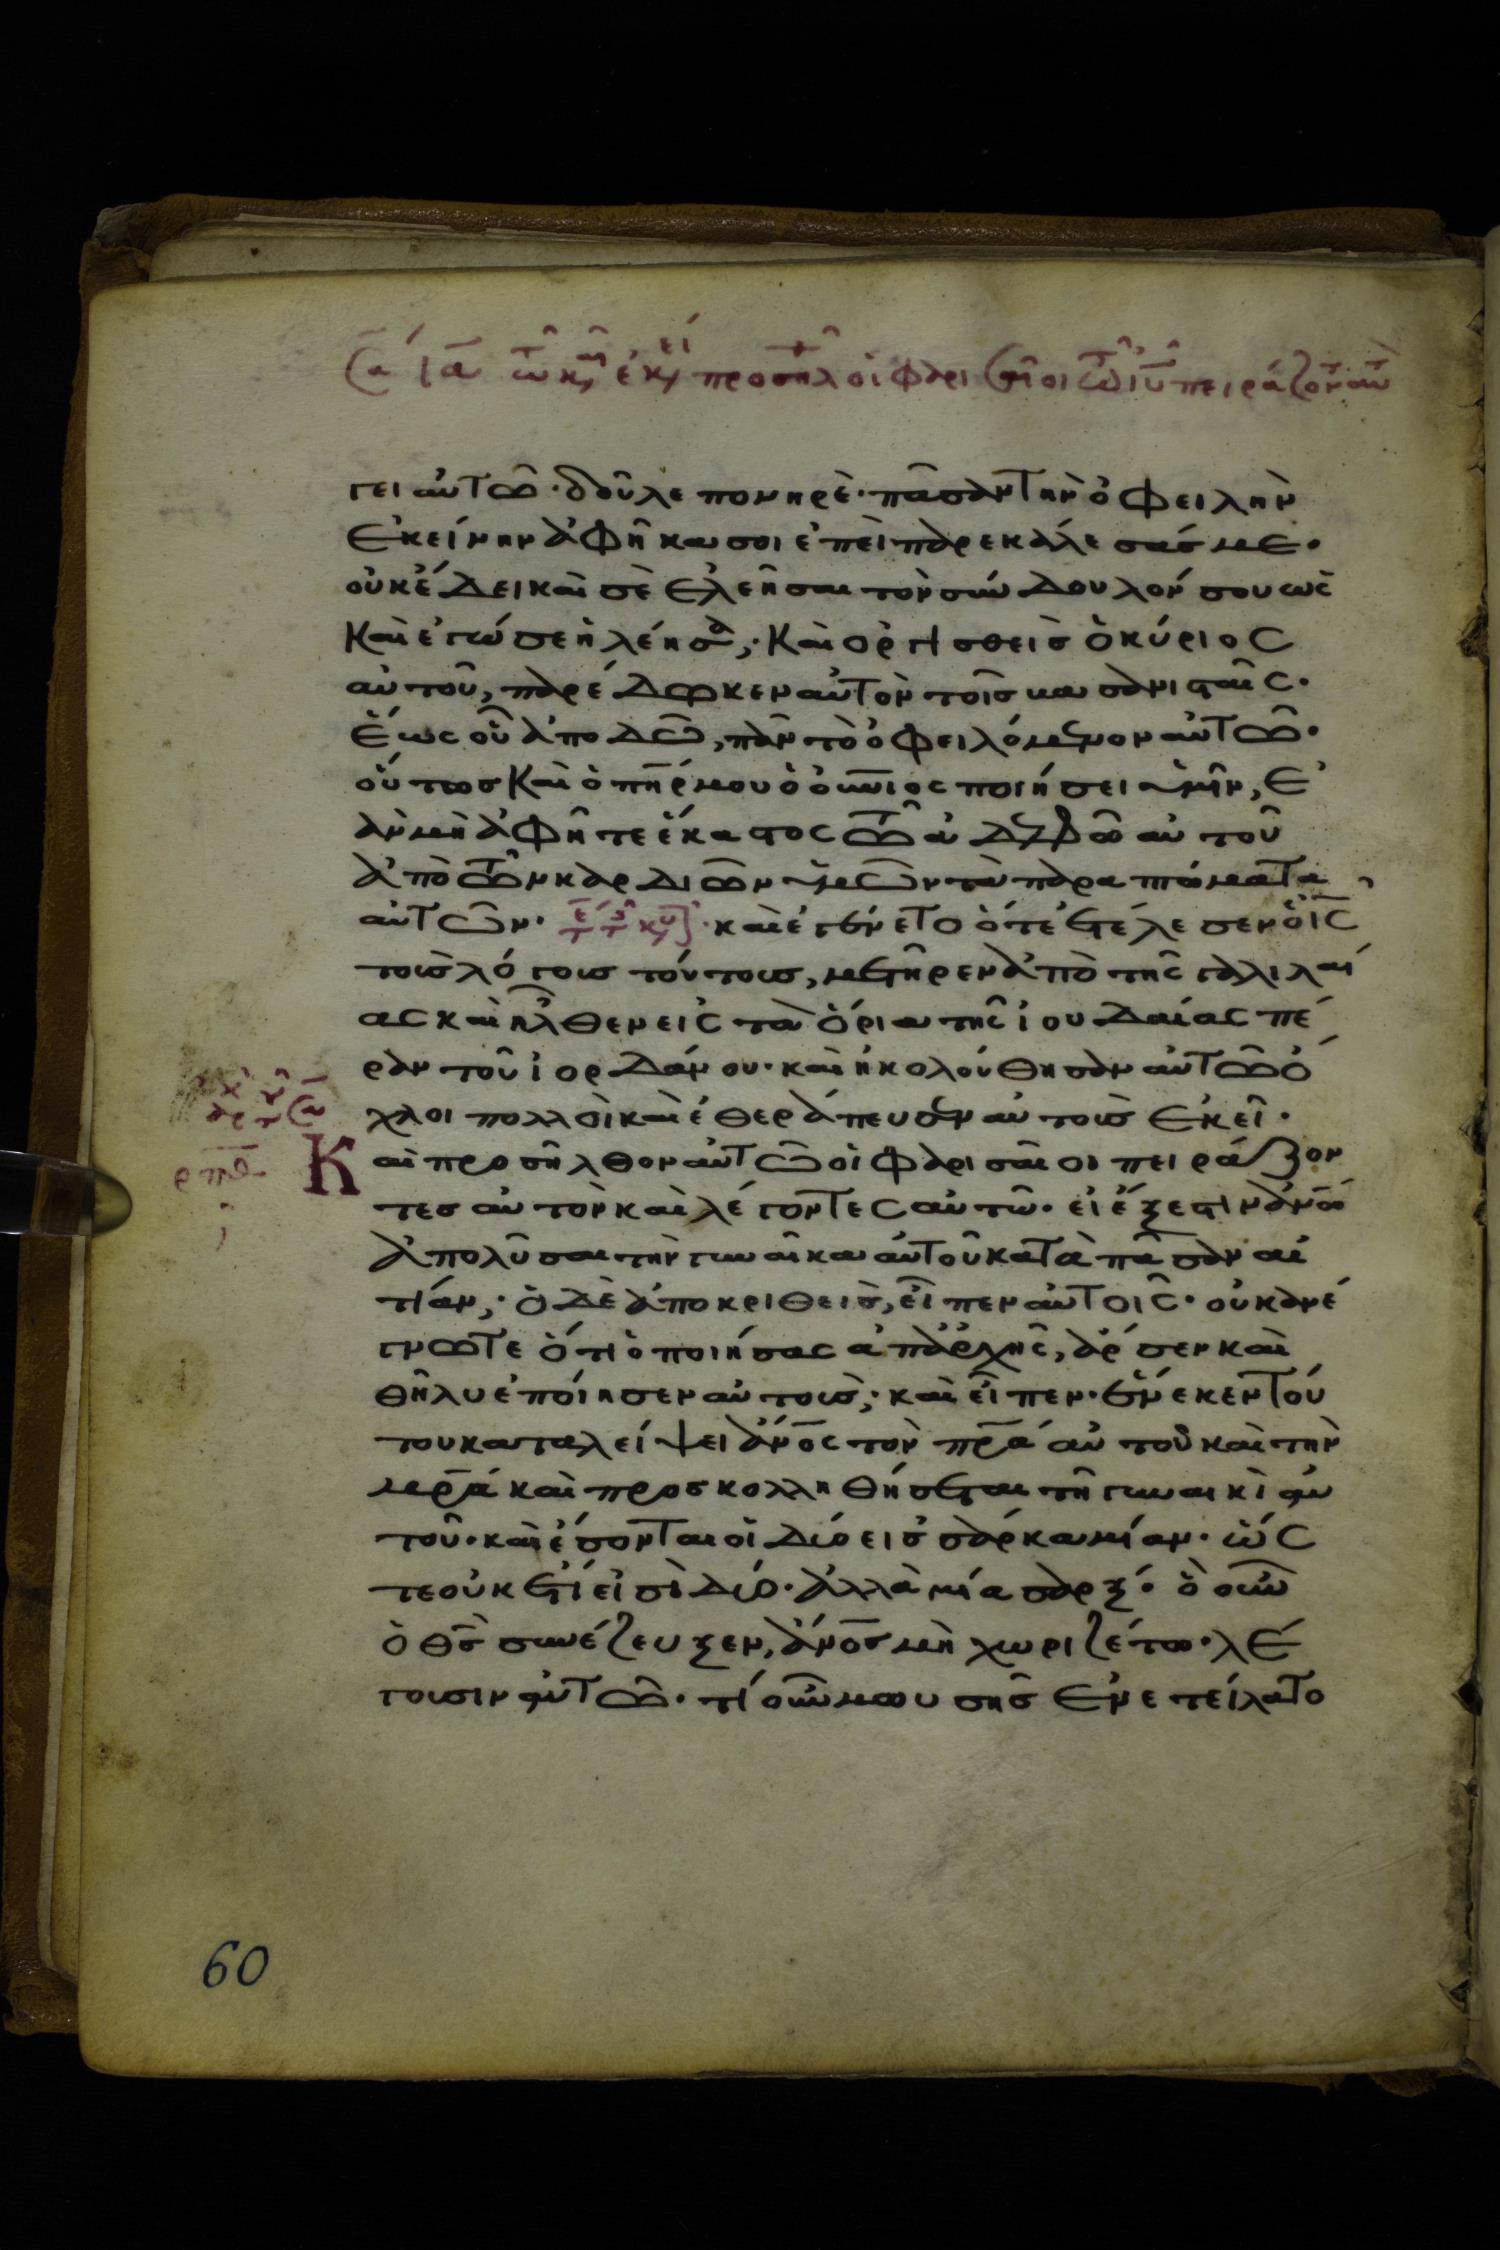 γει αὐτῶ· δοῦλε πονηρὲ· πᾶσαν τὴν ὀφειλὴν
ἐκείνην ἀφῆκά σοι ἐπεὶ παρεκάλεσάς με·
οὐκ ἔδει καὶ σὲ ἐλεῆσαι τὸν σύνδουλόν σου ὡς
καὶ ἐγώ σε ἠλέησα; καὶ ὀργισθεὶς ὁ κύριος
αὐτοῦ, παρέδωκεν αὐτὸν τοῖς βασανισταῖς·
ἕως οὗ ἀποδῶ, πᾶν τὸ ὀφειλόμενον αὐτῶ·
οὕτως καὶ ὁ πη̅ρ μου ὁ οὐ̅νιος ποιήσει ὑμῖν, ἐ
ὰν μὴ ἀφῆτε ἕκαστος τῶ ἀδελφῶ αὐτοῦ
ἀπὸ τῶν καρδιῶν ὑμῶν τὰ παραπτώματα
αὐτῶν· καὶ ἐγένετο ὅτε ἐτέλεσεν ὁ ι̅ς̅
τοὺς λόγους τούτους, μετῆρεν ἀπὸ τῆς γαλιλαί
ας καὶ ἦλθεν εἰς τὰ ὅρια τῆς ἰουδαίας πέ
ραν τοῦ ἰορδάνου· καὶ ἠκολούθησαν αὐτῶ ὄ
χλοι πολλοὶ καὶ ἐθεράπευσεν αὐτοὺς ἐκεῖ·
ρπθ
Καὶ προσῆλθον αὐτῶ οἱ φαρισαῖοι πειράζον
τες αὐτὸν καὶ λέγοντες αὐτῶ· εἰ ἔξεστιν ἀν̅ω̅
ἀπολῦσαι τὴν γυναῖκα αὐτοῦ κατὰ πᾶσαν αἰ
τίαν; ὁ δὲ ἀποκριθεὶς, εἶπεν αὐτοῖς· οὐκ ἀνέ
γνωτε ὅτι ὁ ποιήσας ἀπ' ἀρχῆς, ἄρσεν καὶ
θῆλυ ἐποίησεν αὐτοὺς; καὶ εἶπεν· ἕνεκεν τού
του καταλείψει ἄν̅ο̅ς τὸν π̅ρ̅α αὐτοῦ καὶ τὴν
μ̅ρ̅α καὶ προσκολληθήσεται τῆ γυναικὶ αὐ
τοῦ· καὶ ἔσονται οἱ δύο εἰς σάρκα μίαν· ὥς
τε οὐκ ἔτι εἰσὶ δύο· ἀλλὰ μία σάρξ· ὃ οὖν
ὁ θ̅ς̅ συνέζευξεν, ἄν̅ο̅ς μὴ χωριζέτω· λέ
γουσιν αὐτῶ· τί οὖν μωυσῆς ἐνετείλατο
60